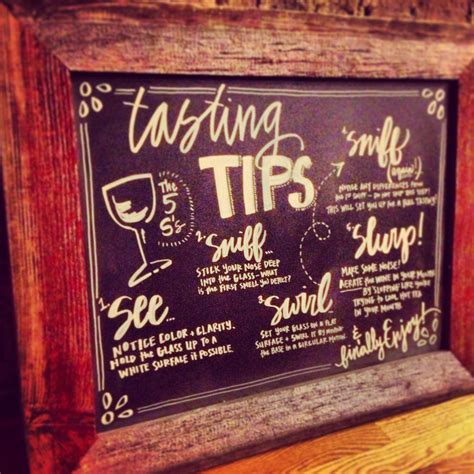 tasting
TIPS
The
5
S's.
1. See...
NOTICE COLOR + CLARITY.
HOLD THE GLASS UP TO A
WHITE SURFACE IF POSSIBLE.
2. Sniff...
STICK YOUR NOSE DEEP
INTO THE GLASS - WHAT
IS THE FIRST SMELL YOU DETECT?
3. Swirl...
SET YOUR GLASS ON A FLAT
SURFACE + SWIRL IT BY MOVING
THE BASE IN A CIRCULAR MOTION.
4. Sniff
(again!)
NOTICE ANY DIFFERENCES FROM
THE 1ST SNIFF - DO NOT SKIP THIS STEP!
THIS WILL SET YOU UP FOR A FULL TASTING!
5. Slurp!
MAKE SOME NOISE!
AERATE THE WINE IN YOUR MOUTH
BY SLURPING LIKE YOU'RE
TRYING TO COOL HOT TEA
IN YOUR MOUTH.
& finally Enjoy!